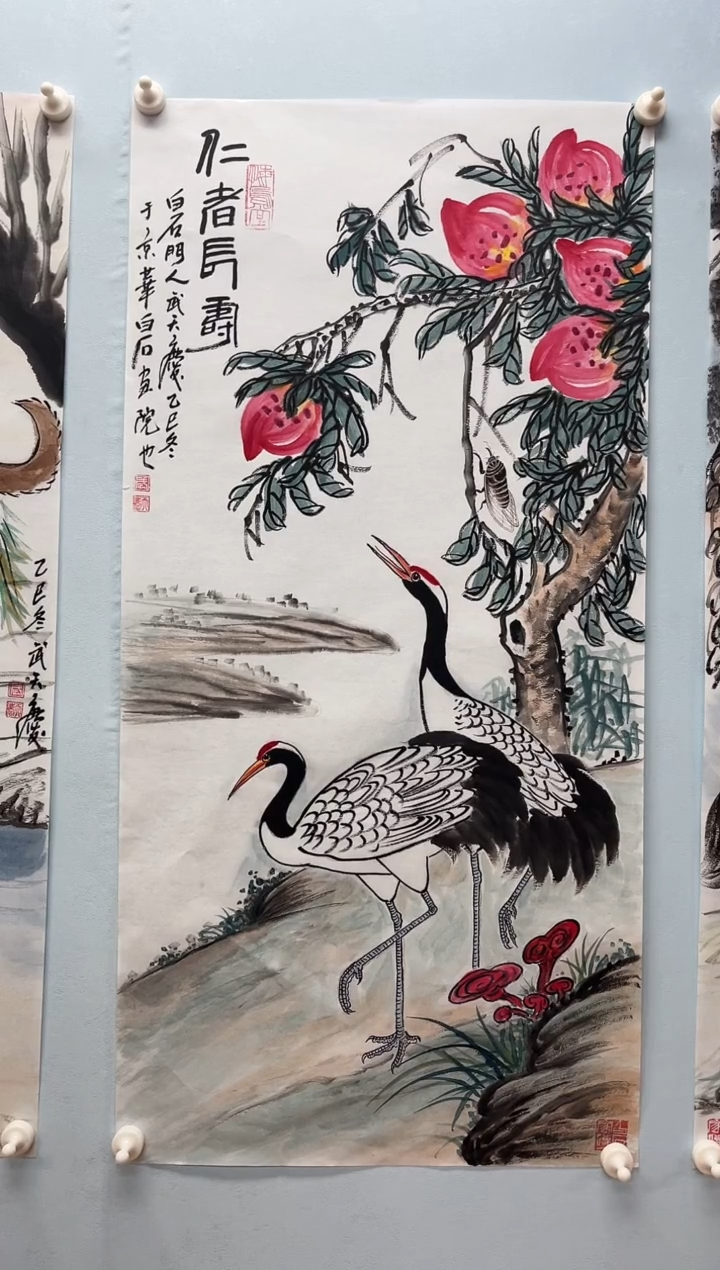 仁者長壽
白石門人武天慶乙巳冬
于京華白石画院也
乙巳冬武天慶